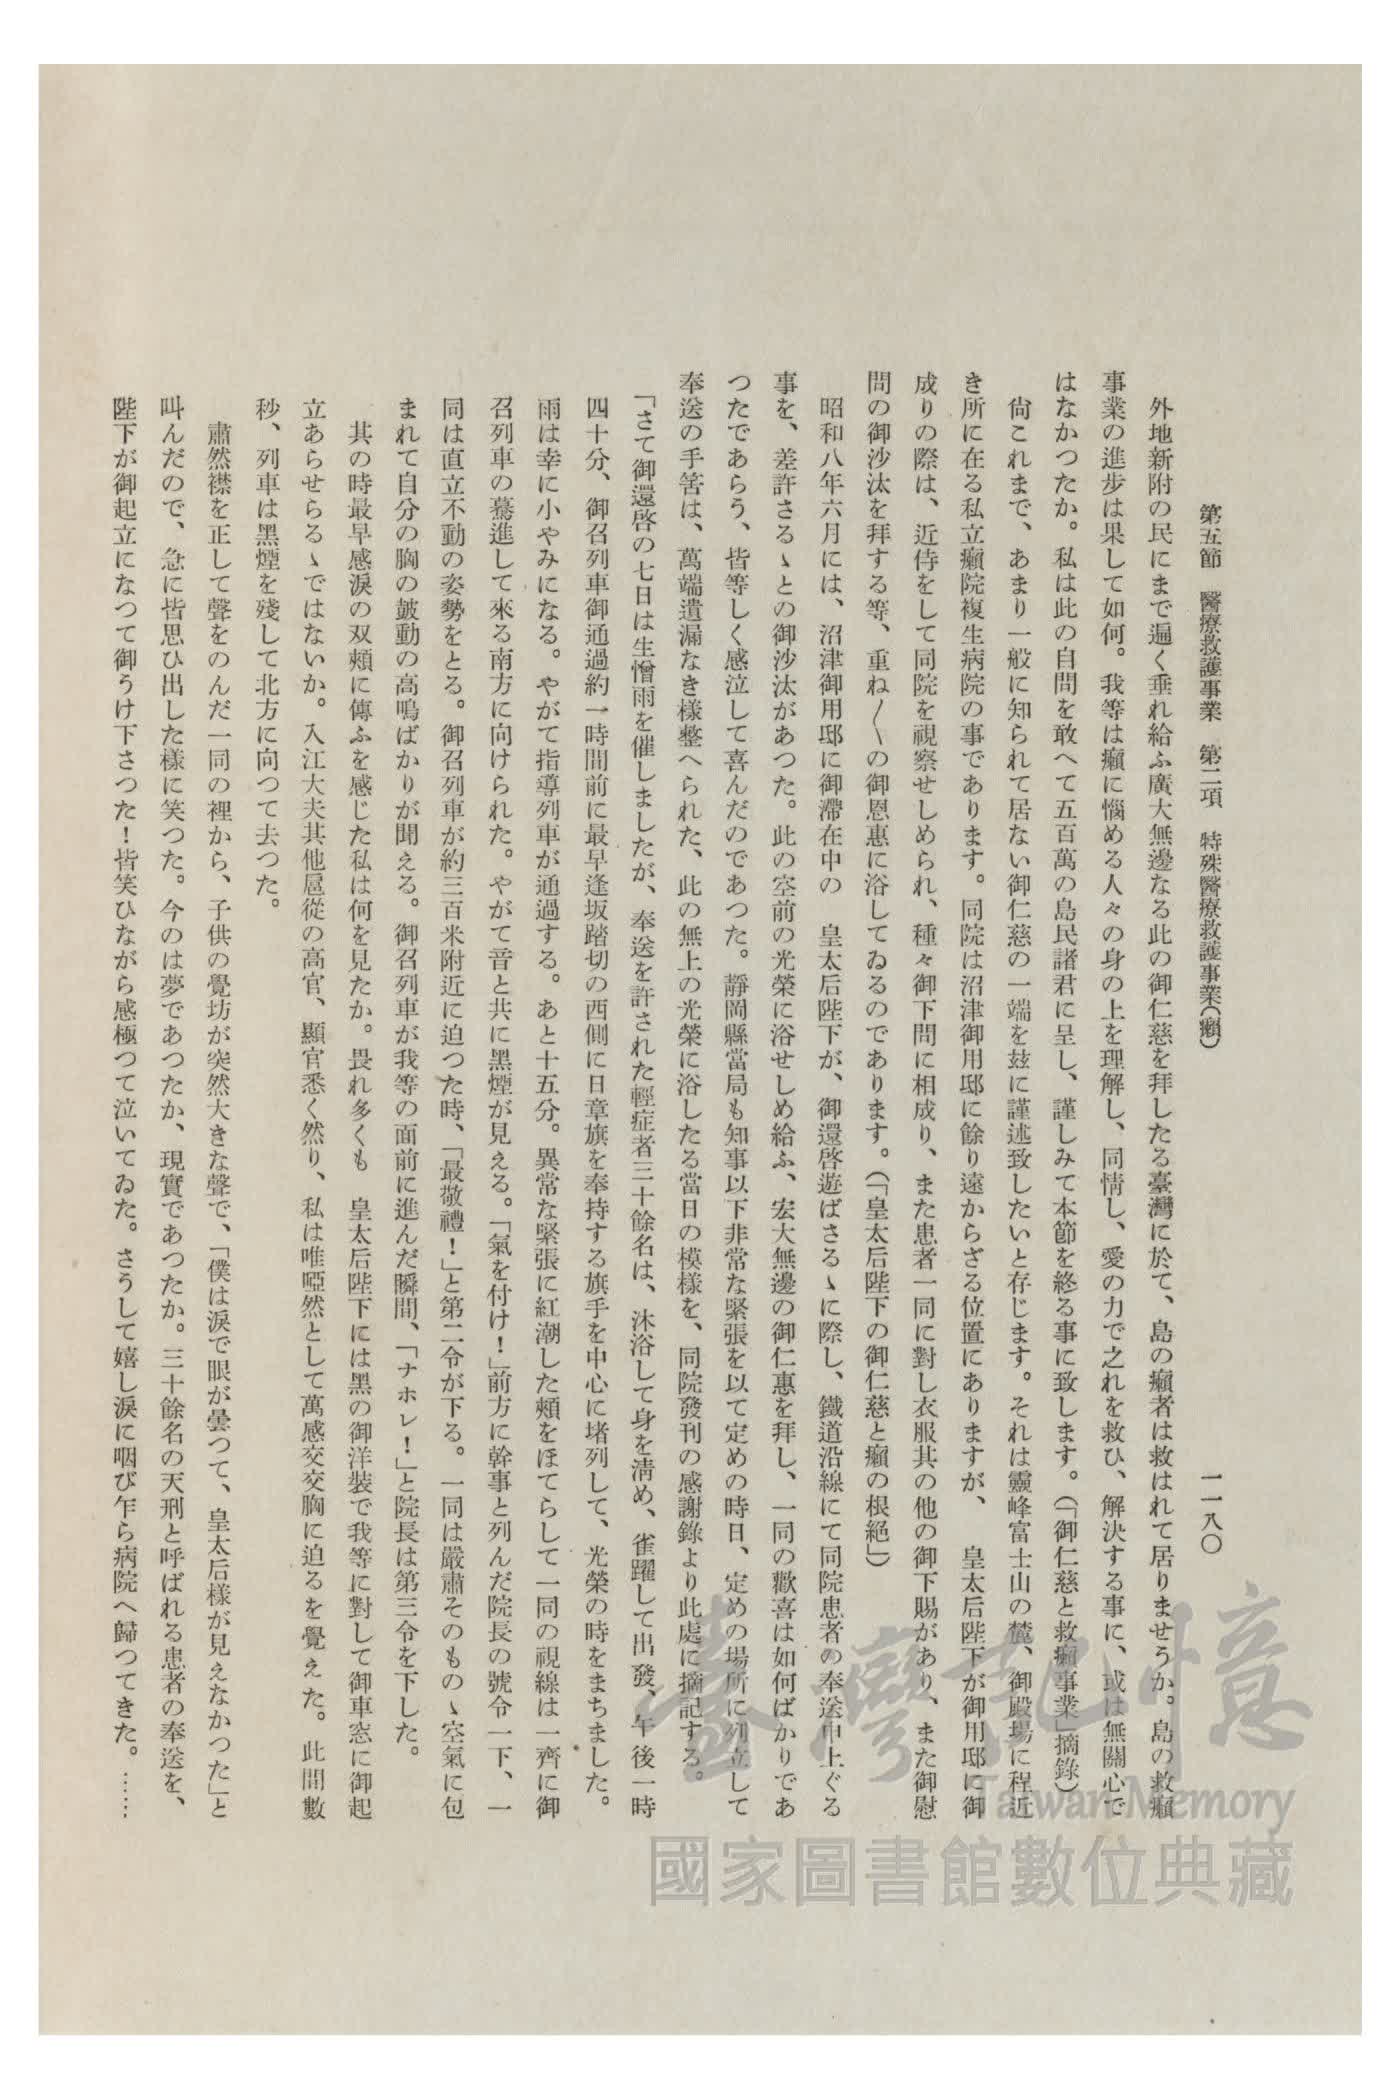 第五節　醫療救護事業　第二項　特殊醫療救護事業(癩)　一一八〇
外地新附の民にまで遍く垂れ給ふ廣大無邊なる此の御仁慈を拜したる臺灣に於て、島の癩者は救はれて居りませうか。島の救癩
事業の進步は果して如何。我等は癩に惱める人々の身の上を理解し、同情し、愛の力で之れを救ひ、解決する事に、或は無關心で
はなかつたか。私は此の自問を敢へて五百萬の島民諸君に呈し、謹しみて本節を終る事に致します。(「御仁慈と救癩事業」摘錄)
尙これまで、あまり一般に知られて居ない御仁慈の一端を玆に謹述致したいと存じます。それは靈峰富士山の麓、御殿場に程近
き所に在る私立癩院複生病院の事であります。同院は沼津御用邸に餘り遠からざる位置にありますが、　皇太后陛下が御用邸に御
成りの際は、近侍をして同院を視察せしめられ、種々御下問に相成り、また患者一同に對し衣服其の他の御下賜があり、また御慰
問の御沙汰を拜する等、重ね〱の御恩惠に浴してゐるのであります。(「皇太后陛下の御仁慈と癩の根絕」)
昭和八年六月には、沼津御用邸に御滯在中の　皇太后陛下が、御還啓遊ばさるゝに際し、鐵道沿線にて同院患者の奉送申上ぐる
事を、差許さるゝとの御沙汰があつた。此の空前の光榮に浴せしめ給ふ、宏大無邊の御仁惠を拜し、一同の歡喜は如何ばかりであ
つたであらう、皆等しく感泣して喜んだのであつた。靜岡縣當局も知事以下非常な緊張を以て定めの時日、定めの場所に列立して
奉送の手筈は、萬端遺漏なき樣整へられた、此の無上の光榮に浴したる當日の模樣を、同院發刊の感謝錄より此處に摘記する。
「さて御還啓の七日は生憎雨を催しましたが、奉送を許された輕症者三十餘名は、沐浴して身を淸め、雀躍して出發、午後一時
四十分、御召列車御通過約一時間前に最早逢坂踏切の西側に日章旗を奉持する旗手を中心に堵列して、光榮の時をまちました。
雨は幸に小やみになる。やがて指導列車が通過する。あと十五分。異常な緊張に紅潮した頰をほてらして一同の視線は一齊に御
召列車の驀進して來る南方に向けられた。やがて音と共に黑煙が見える。「氣を付け！」前方に幹事と列んだ院長の號令一下、一
同は直立不動の姿勢をとる。御召列車が約三百米附近に迫つた時、「最敬禮！」と第二令が下る。一同は嚴肅そのものゝ空氣に包
まれて自分の胸の皷動の高鳴ばかりが聞える。御召列車が我等の面前に進んだ瞬間、「ナホレ！」と院長は第三令を下した。
其の時最早感淚の双頰に傳ふを感じた私は何を見たか。畏れ多くも　皇太后陛下には黑の御洋裝で我等に對して御車窓に御起
立あらせらるゝではないか。入江大夫其他扈從の高官、顯官悉く然り、私は唯啞然として萬感交交胸に迫るを覺えた。此間數
秒、列車は黑煙を殘して北方に向つて去つた。
肅然襟を正して聲をのんだ一同の裡から、子供の覺坊が突然大きな聲で、「僕は淚で眼が曇つて、皇太后樣が見えなかつた」と
叫んだので、急に皆思ひ出した樣に笑つた。今のは夢であつたか、現實であつたか。三十餘名の天刑と呼ばれる患者の奉送を、
陛下が御起立になつて御うけ下さつた！皆笑ひながら感極つて泣いてゐた。さうして嬉し淚に咽び乍ら病院へ歸つてきた。……
臺灣記憶
Taiwan Memory
國家圖書館數位典藏